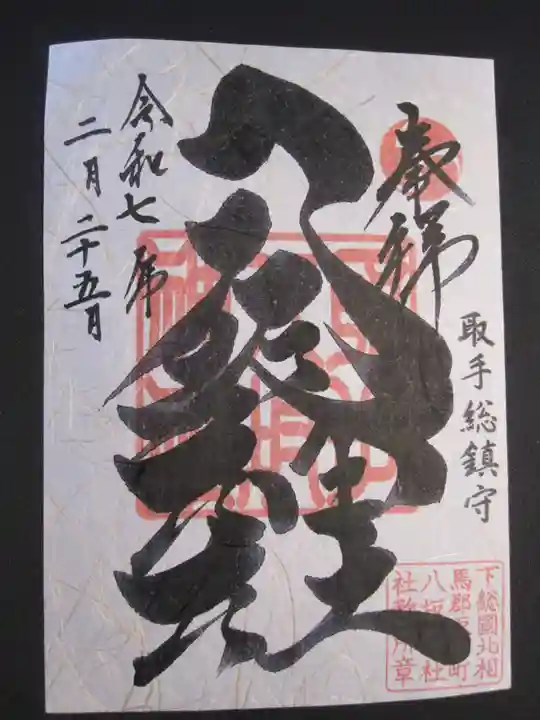 奉拝
取手総鎮守
令和七年
二月二十五日
下総國北相
馬郡取手町
八坂神社
社務所章